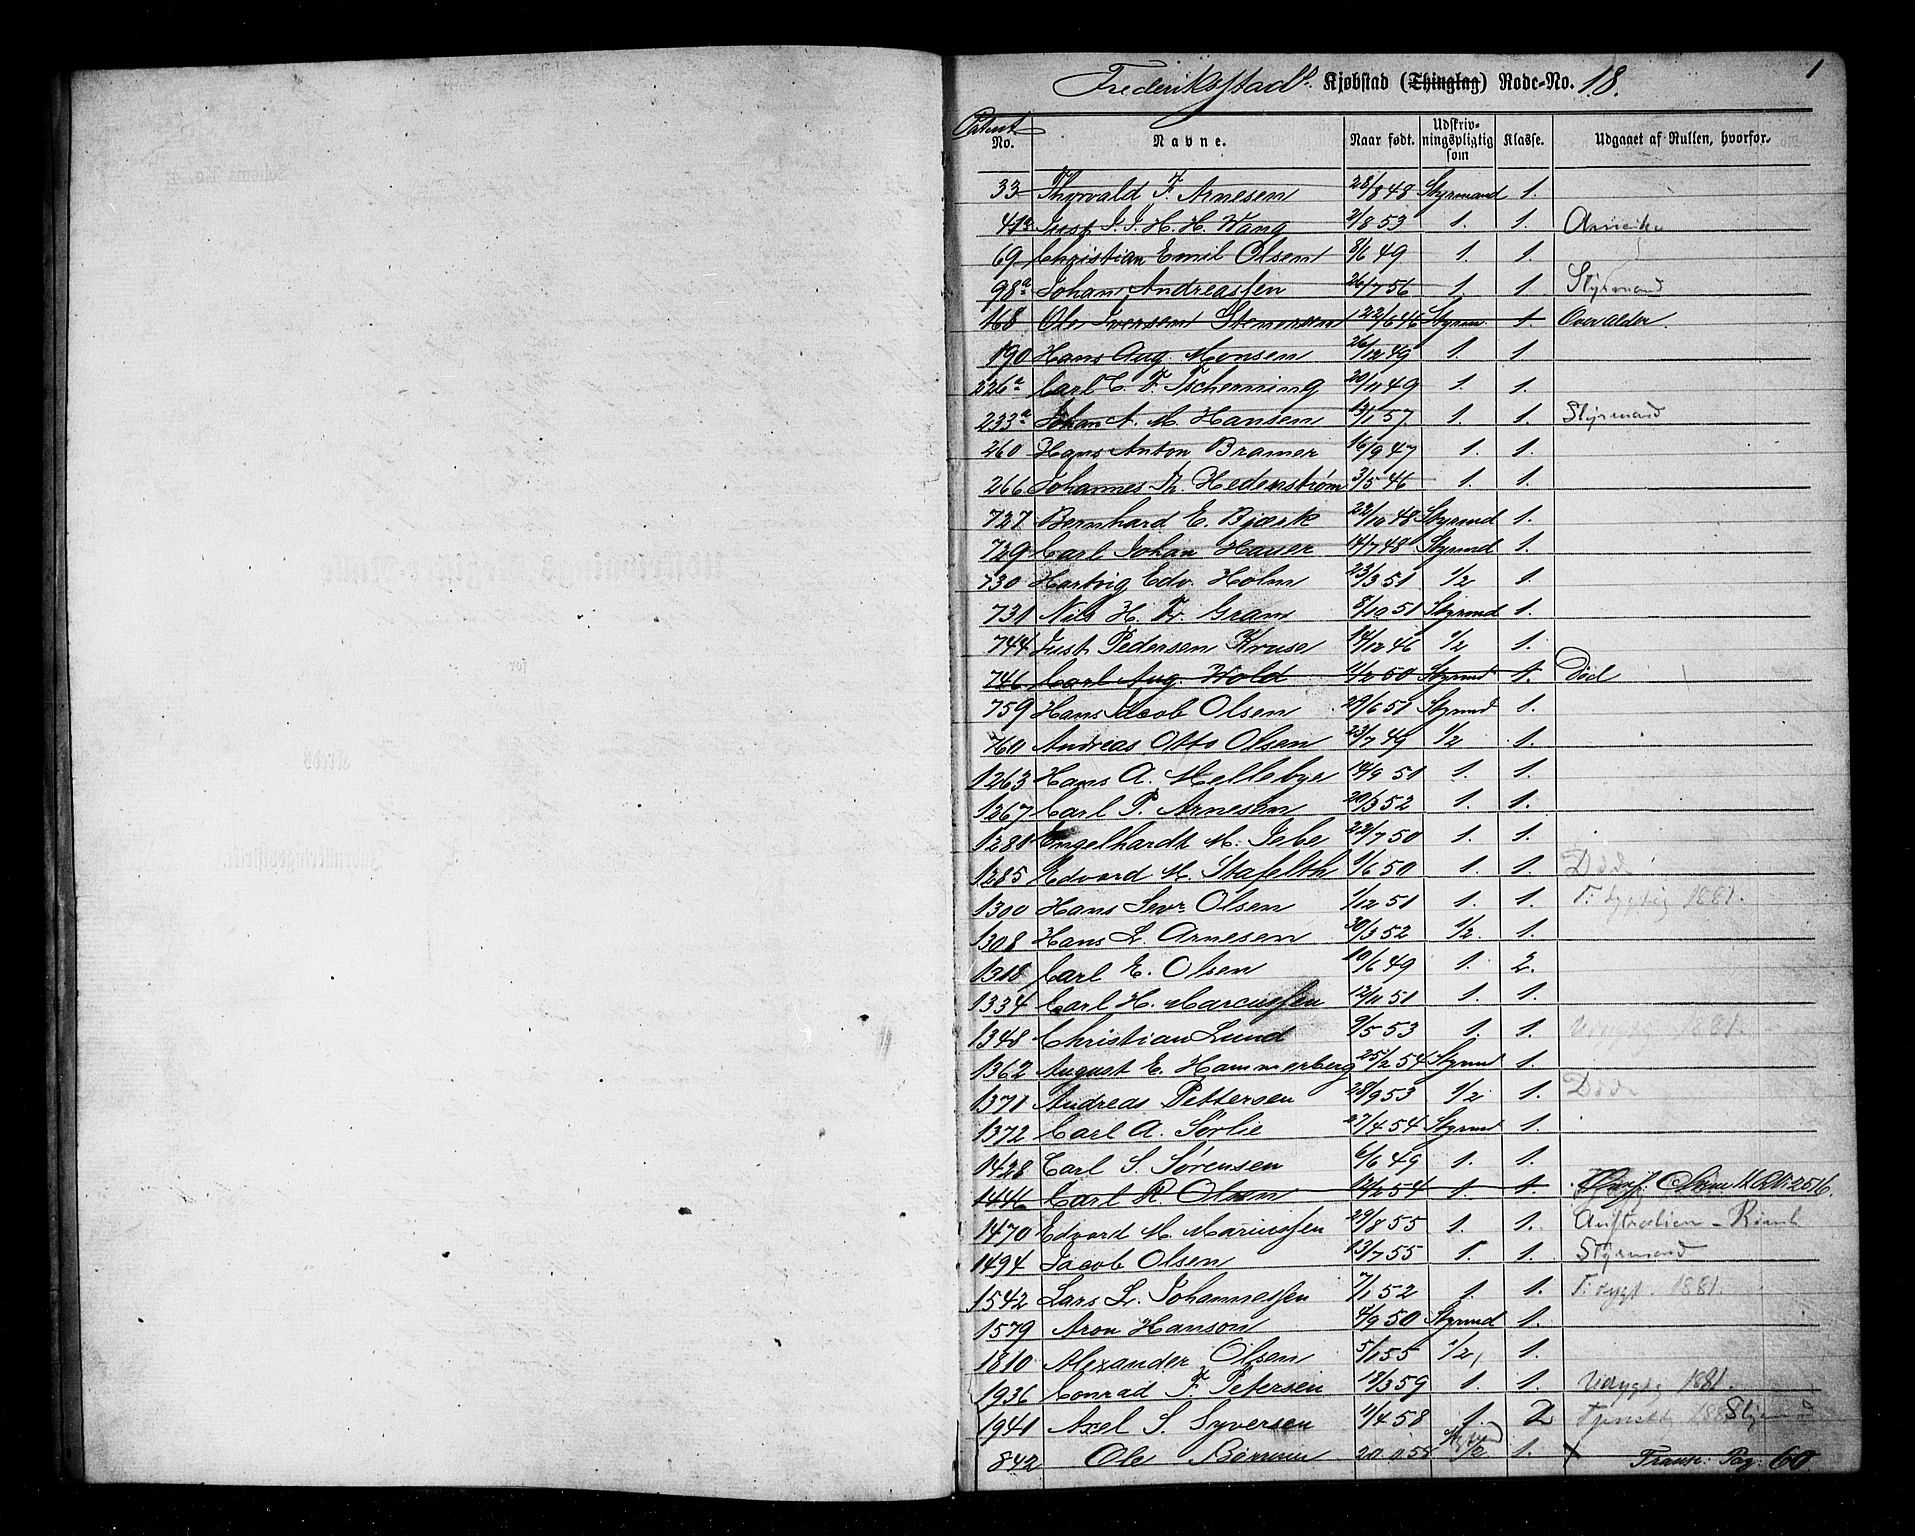 1
Frederiksstads Kjøbstad (Thinglag) Rode-No. 18.
Patent
No. Navne. Naar født. Udskriv-ningspligtig som Klasse. Udgaaet af Rullen, hvorfor.
33 Thorvald F. Arnesen 28/8 48 Styrmand 1.
41a Just J. J. H. H. Wang 2/8 53 1. 1. Amerika
69 Christian Emil Olsen 8/6 49 1. 1.
98a Johan Andreassen 26/7 56 1. 1. Styrmand
168 Ole Iversen Stenersen 22/6 46 Styrm. 1. Over alder.
190 Hans Aug. Monsen 26/12 49 1. 1
226a Carl C. F. Tscherning 20/11 49 1. 1.
233a Johan A. M. Hansen 13/1 57 1. 1. Styrmand
260 Hans Anton Bramer 16/9 47 1. 1.
266 Johannes Th. Hedenstrøm 3/5 46 1. 1.
727 Bernhard E. Bjørk 22/10 48 Styrmd 1.
729 Carl Johan Hauer 14/7 48 Styrmd 1.
730 Hartvig Edv. Holm 23/3 51 1/2 1.
731 Nils H. Fr. Gram 8/10 51 Styrmd 1.
744 Just Pedersen Kruse 14/12 46 1/2 1.
746 Carl Aug. Wold 11/2 50 Styrmd 1. Død
759 Hans Jacob Olsen 29/6 51 Styrmd 1.
760 Andreas Otto Olsen 23/7 49 1/2 1.
1263 Hans A. Mellebye 14/9 51 1. 1.
1267 Carl P. Arnesen 20/3 52 1. 1.
1281 Engelhardt M. Jebe 22/7 50 1. 1.
1285 Edvard M. Stafelth 1/6 50 1. 1. Død
1300 Hans Sevr. Olsen 1/12 51 1. 1. 1881.
1308 Hans L. Arnesen 30/3 52 1/2 1.
1318 Carl E. Olsen 10/6 49 1. 2.
1334 Carl H. Marcussen 12/11 51 1. 1.
1348 Christian Lund 9/5 53 1. 1. 81.
1362 August E. Hammerberg 25/2 54 Styrmd 1.
1371 Andreas Pettersen 28/9 53 1/2 1. Død
1372 Carl A. Sørlie 27/4 54 Styrmd 1.
1428 Carl S. Sørensen 6/6 49 1. 1.
1446 Carl R. Olsen 12/2 54 1. 1. 2516.
1470 Edvard M. Mariussen 29/8 55 1. 1. Australien - Rømt
1494 Jacob Olsen 13/7 55 1. 1. Styrmand
1542 Lars L. Johannessen 7/1 52 1. 1. 1881.
1579 Aron Hanson 4/9 50 Styrmd 1.
1810 Alexander Olsen 5/1 55 1/2 1.
1936 Conrad F. Petersen 18/3 59 1. 1. 1881.
1941 Axel S. Syversen 11/4 58 1. 2 Styrmd
842 Ole 1/2 1. X Transp. Pag. 60.